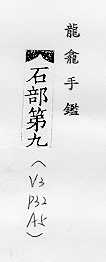 龍龕手鑑
石部第九
(V3
P32
A5)